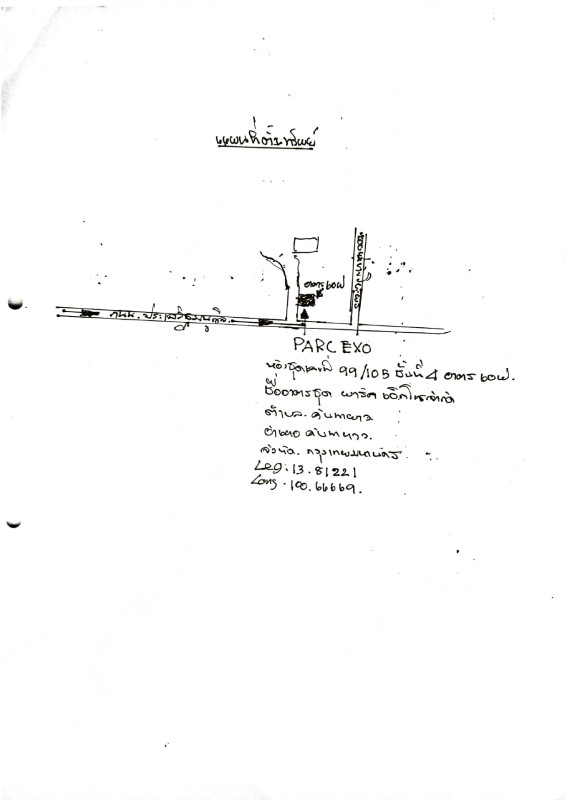 แผนที่ตั้งทรัพย์
อาคารเอฟ
ถนน. ประเสริฐมนูกิจ
PARC EXO
ห้องชุดเลขที่ 99/105 ชั้นที่ 4 อาคารเอฟ.
ชื่ออาคารชุด พาร์ค เอ็กโซ่
ตำบล. คันนายาว
อำเภอ คันนายาว.
จังหวัด. กรุงเทพมหานคร.
Leg: 13.81221
Long. 100.66669.